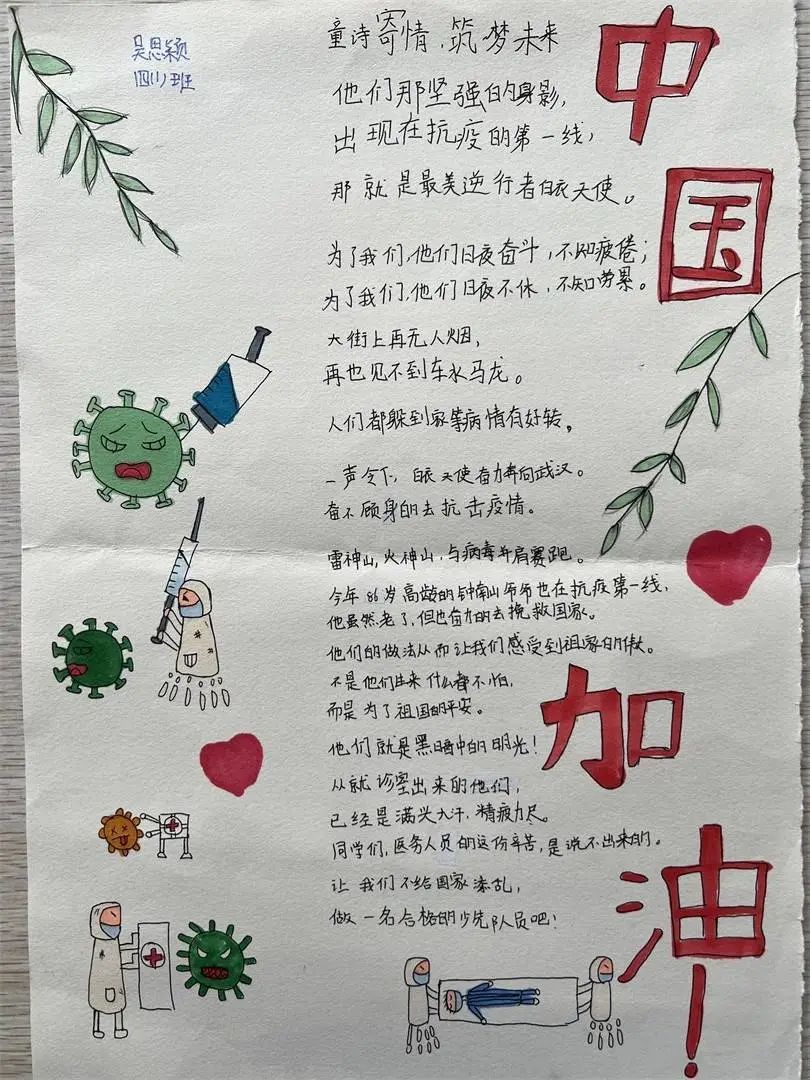 吴思颖
四(1)班
童诗寄情,筑梦未来
他们那坚强的身影,
出现在抗疫的第一线,
那就是最美逆行者白衣天使。
为了我们,他们日夜奋斗,不知疲倦;
为了我们,他们日夜不休,不知劳累。
大街上再无人烟,
再也见不到车水马龙。
人们都躲到家等病情有好转。
一声令下,白衣天使奋力奔向武汉。
奋不顾身的去抗击疫情。
雷神山,火神山,与病毒并肩赛跑。
今年86岁高龄的钟南山爷爷也在抗疫第一线,
他虽然老了,但也奋力的去挽救国家。
他们的做法从而让我们感受到祖家的伟大。
不是他们生来什么都不怕,
而是为了祖国的平安。
他们就是黑暗中的明光!
从就诊室出来的他们,
已经是满头大汗,精疲力尽。
同学们,医务人员的这份辛苦,是说不出来的。
让我们不给国家添乱,
做一名合格的少先队员吧!
中
国
加
油!